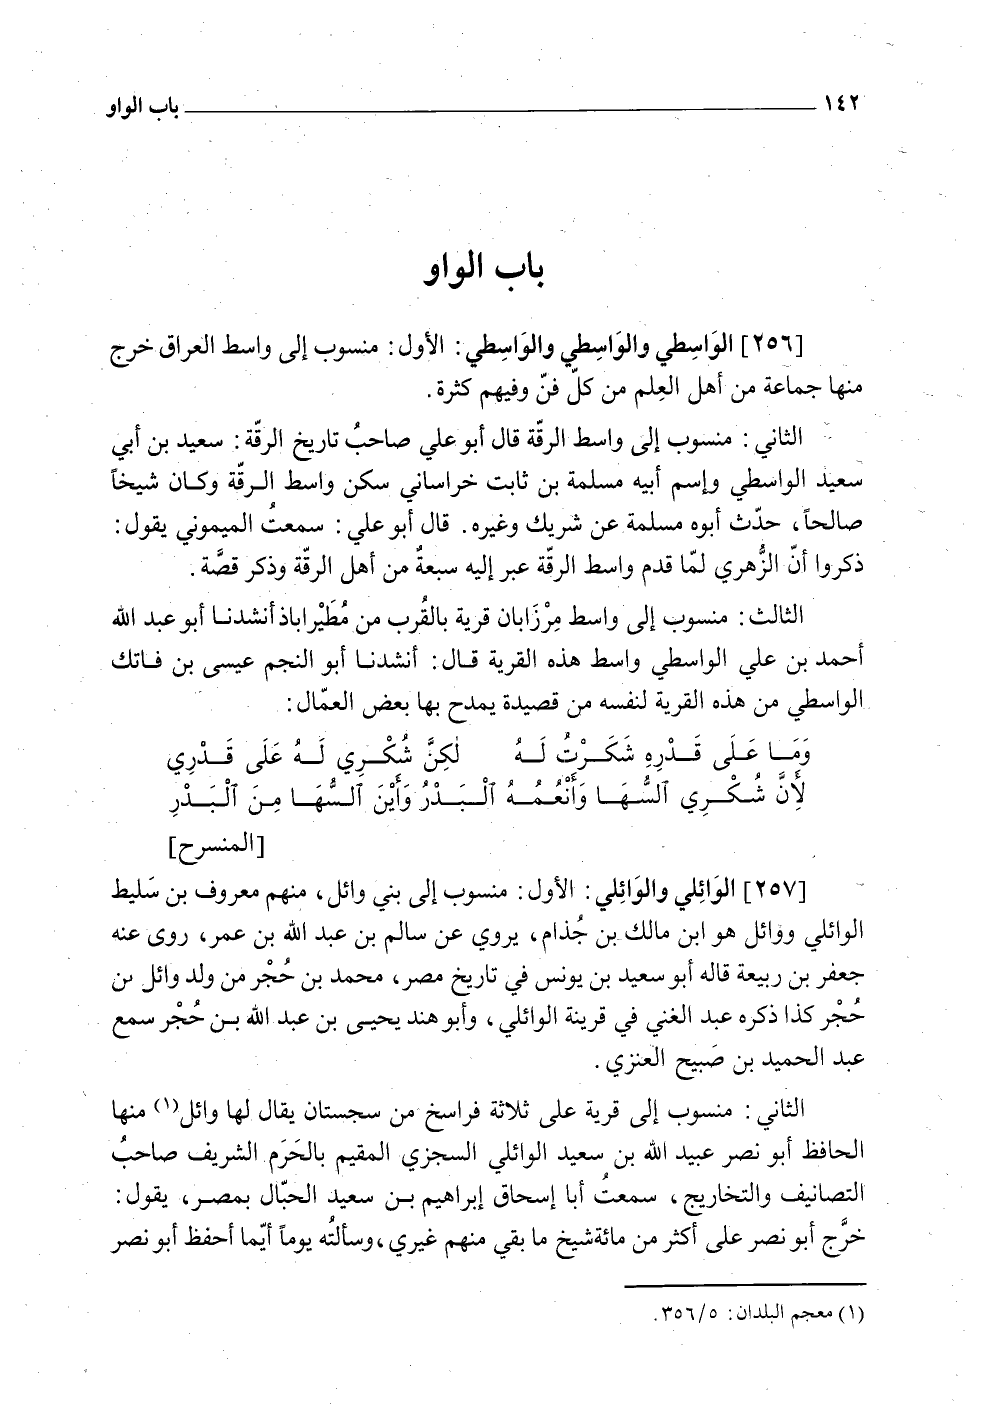 ١٤٢ باب الواو
باب الواو
[٢٥٦] الوَاسِطي والوَاسِطِي والوَاسِطِي: الأول: منسوب إلى واسط العراق خرج
منها جماعة من أهل العِلم من كلّ فنّ وفيهم كثرة.
الثاني: منسوب إلى واسط الرقّة قال أبو علي صاحبُ تاريخ الرقّة: سعيد بن أبي
سعيد الواسطي وإسم أبيه مسلمة بن ثابت خراساني سكن واسط الرقّة وكان شيخاً
صالحاً، حدّث أبوه مسلمة عن شريك وغيره. قال أبو علي: سمعتُ الميموني يقول:
ذكروا أنّ الزُّهري لمّا قدم واسط الرقّة عبر إليه سبعةٌ من أهل الرقّة وذكر قصَّة.
الثالث: منسوب إلى واسط مِرْزَابان قرية بالقُرب من مُطَيْراباذ أنشدنا أبو عبد الله
أحمد بن علي الواسطي واسط هذه القرية قال: أنشدنا أبو النجم عيسى بن فاتك
الواسطي من هذه القرية لنفسه من قصيدة يمدح بها بعض العمّال:
وَمَا عَلَى قَدْرِهِ شَكَرْتُ لَهُ لٰكِنَّ شُكْرِي لَهُ عَلَى قَدْرِي
لِأَنَّ شُكْرِي ٱلسُّهَا وَأَنْعُمُهُ ٱلْبَدْرُ وَأَيْنَ ٱلسُّهَا مِنَ ٱلْبَدْرِ
[المنسرح]
[٢٥٧] الوَائِلي والوَائِلي: الأول: منسوب إلى بني وائل، منهم معروف بن سَليط
الوائلي ووائل هو ابن مالك بن جُذام، يروي عن سالم بن عبد الله بن عمر، روى عنه
جعفر بن ربيعة قاله أبو سعيد بن يونس في تاريخ مصر، محمد بن حُجْر من ولد وائل بن
حُجْر كذا ذكره عبد الغني في قرينة الوائلي، وأبو هند يحيى بن عبد الله بن حُجْر سمع
عبد الحميد بن صَبيح العنزي.
الثاني: منسوب إلى قرية على ثلاثة فراسخ من سجستان يقال لها وائل(١) منها
الحافظ أبو نصر عبيد الله بن سعيد الوائلي السجزي المقيم بالحَرَم الشريف صاحبُ
التصانيف والتخاريج، سمعتُ أبا إسحاق إبراهيم بن سعيد الحبّال بمصر، يقول:
خرَّج أبو نصر على أكثر من مائة شيخ ما بقي منهم غيري، وسألتُه يوماً أيّما أحفظ أبو نصر
(١) معجم البلدان: ٣٥٦/٥.